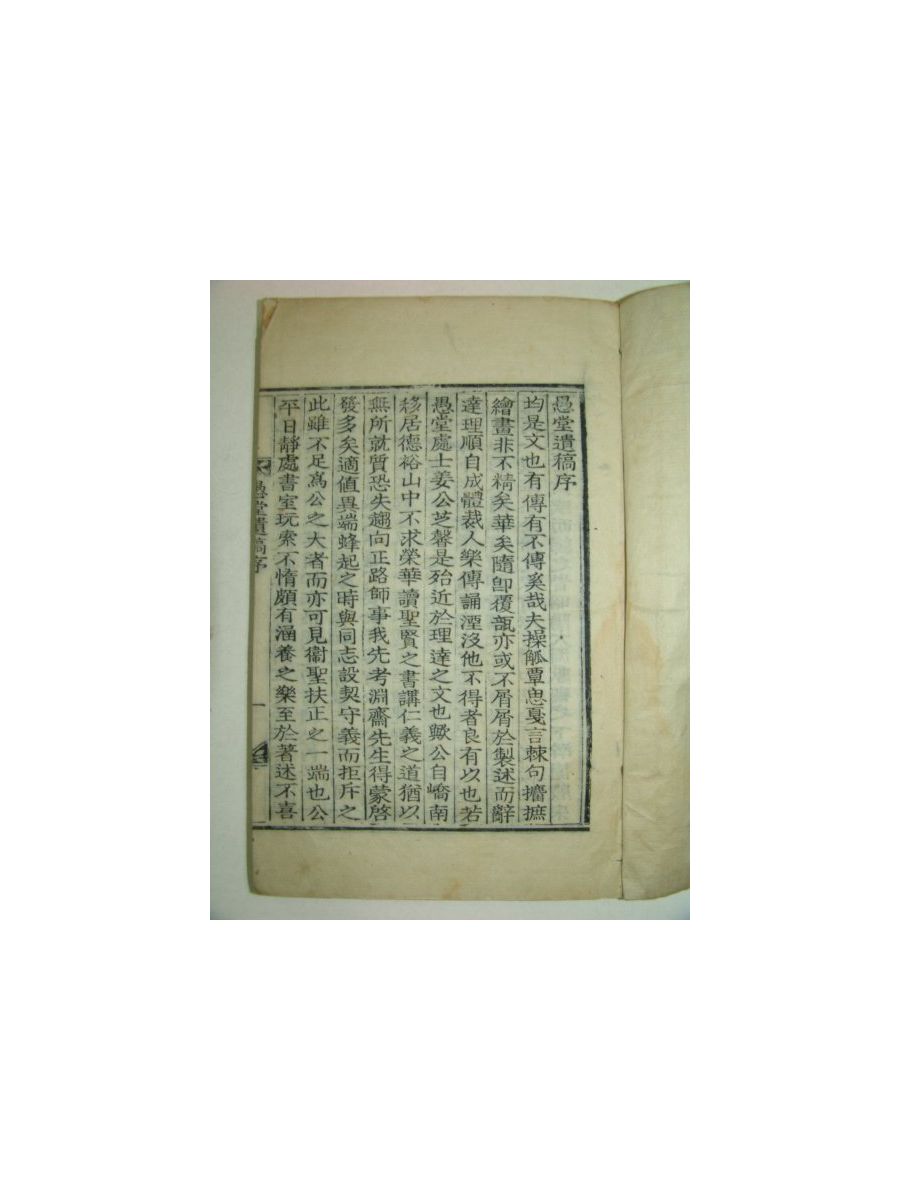 愚堂遺稿序
均是文也有傳有不傳奚哉夫操觚覃思戞言棘句擒摭
繪畫非不精矣華矣隨卽覆瓿亦或不屑屑於製述而辭
達理順自成體裁人樂傳誦湮沒他不得者良有以也若
愚堂處士姜公芝馨是殆近於理達之文也歟公自嶠南
移居德裕山中不求榮華讀聖賢之書講仁義之道猶以
無所就質恐失趨向正路師事我先考淵齋先生得蒙啓
發多矣適値異端蜂起之時與同志設契守義而拒斥之
此雖不足爲公之大者而亦可見衞聖扶正之一端也公
平日靜處書室玩索不惰頗有涵養之樂至於著述不喜
愚堂遺稿序
一